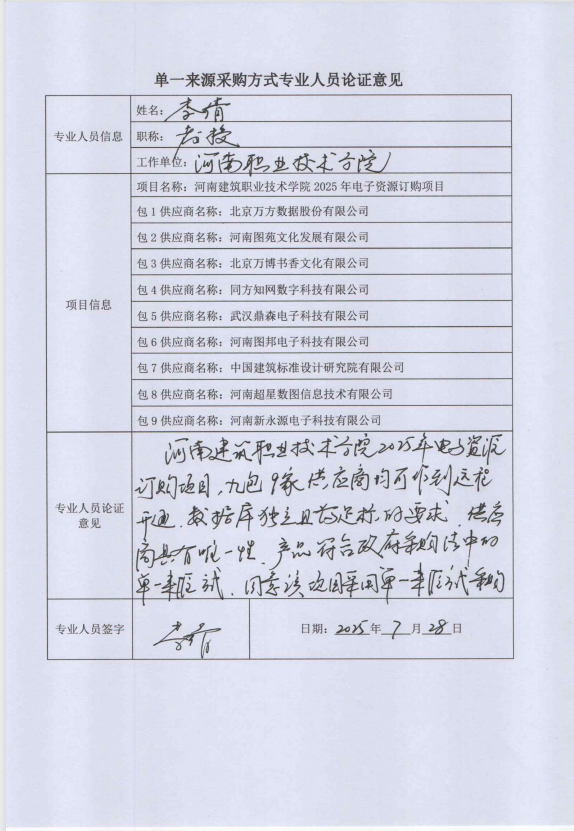 单一来源采购方式专业人员论证意见
专业人员信息
姓名：李倩
职称：教授
工作单位：河南职业技术学院
项目信息
项目名称：河南建筑职业技术学院 2025 年电子资源订购项目
包 1 供应商名称：北京万方数据股份有限公司
包 2 供应商名称：河南图苑文化发展有限公司
包 3 供应商名称：北京万博书香文化有限公司
包 4 供应商名称：同方知网数字科技有限公司
包 5 供应商名称：武汉鼎森电子科技有限公司
包 6 供应商名称：河南图邦电子科技有限公司
包 7 供应商名称：中国建筑标准设计研究院有限公司
包 8 供应商名称：河南超星数图信息技术有限公司
包 9 供应商名称：河南新永源电子科技有限公司
专业人员论证
意见
河南建筑职业技术学院2025年电子资源
订购项目，九包9家供应商均可作到远程
开通、数据库独立且的要求，供应
商具有唯一性，产品符合政府采购法中的
单一来源方式，同意该项目采用单一来源方式采购
专业人员签字
日期：2025年 7 月 28 日